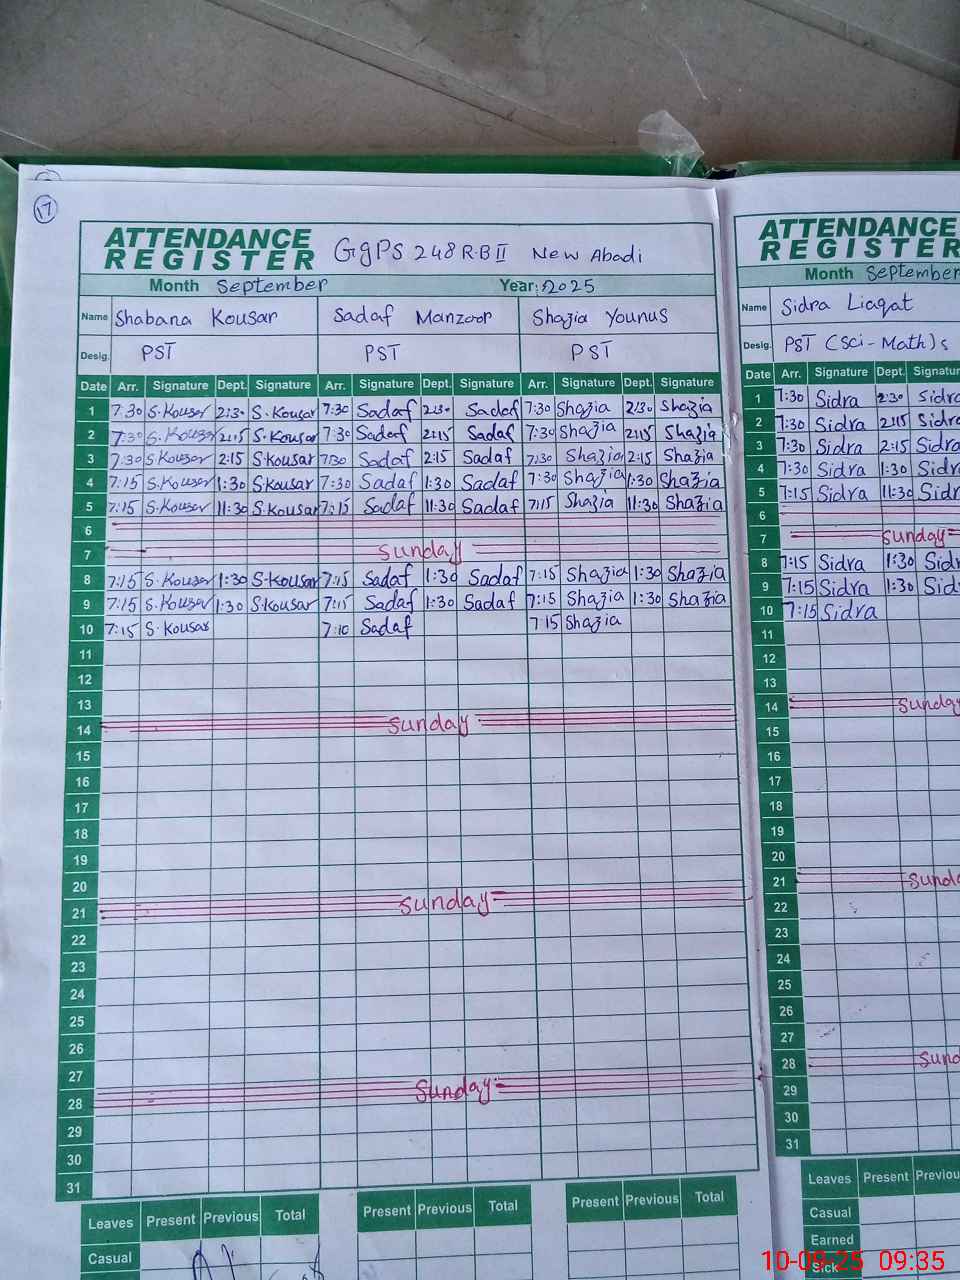 17
ATTENDANCE
REGISTER GgPS 248 R.B II New Abadi
Month September Year: 2025
Name Shabana Kousar Sadaf Manzoor Shazia Younus
Desig. PST PST PST
Date Arr. Signature Dept. Signature Arr. Signature Dept. Signature Arr. Signature Dept. Signature
1 7:30 S.Kousar 2:30 S.Kousar 7:30 Sadaf 2:30 Sadaf 7:30 Shazia 2:30 Shazia
2 7:30 S.Kousar 2:15 S.Kousar 7:30 Sadaf 2:15 Sadaf 7:30 Shazia 2:15 Shazia
3 7:30 S.Kousar 2:15 S.Kousar 7:30 Sadaf 2:15 Sadaf 7:30 Shazia 2:15 Shazia
4 7:15 S.Kousar 1:30 S.Kousar 7:30 Sadaf 1:30 Sadaf 7:30 Shazia 1:30 Shazia
5 7:15 S.Kousar 11:30 S.Kousar 7:15 Sadaf 11:30 Sadaf 7:15 Shazia 11:30 Shazia
6
7 Sunday
8 7:15 S.Kousar 1:30 S.Kousar 7:15 Sadaf 1:30 Sadaf 7:15 Shazia 1:30 Shazia
9 7:15 S.Kousar 1:30 S.Kousar 7:15 Sadaf 1:30 Sadaf 7:15 Shazia 1:30 Shazia
10 7:15 S.Kousar 7:10 Sadaf 7:15 Shazia
11
12
13
14 Sunday
15
16
17
18
19
20
21 Sunday
22
23
24
25
26
27
28 Sunday
29
30
31
Leaves Present Previous Total Present Previous Total Present Previous Total
Casual
ATTENDANCE
REGISTER
Month September
Name Sidra Liaqat
Desig. PST (Sci-Math)
Date Arr. Signature Dept. Signatur
1 7:30 Sidra 2:30 Sidra
2 7:30 Sidra 2:15 Sidra
3 7:30 Sidra 2:15 Sidra
4 7:30 Sidra 1:30 Sidra
5 7:15 Sidra 11:30 Sidr
6
7 Sunday
8 7:15 Sidra 1:30 Sidr
9 7:15 Sidra 1:30 Sid
10 7:15 Sidra
11
12
13
14 Sunday
15
16
17
18
19
20
21 Sunda
22
23
24
25
26
27
28 Sund
29
30
31
Leaves Present Previou
Casual
Earned
Sick
10-09-25 09:35